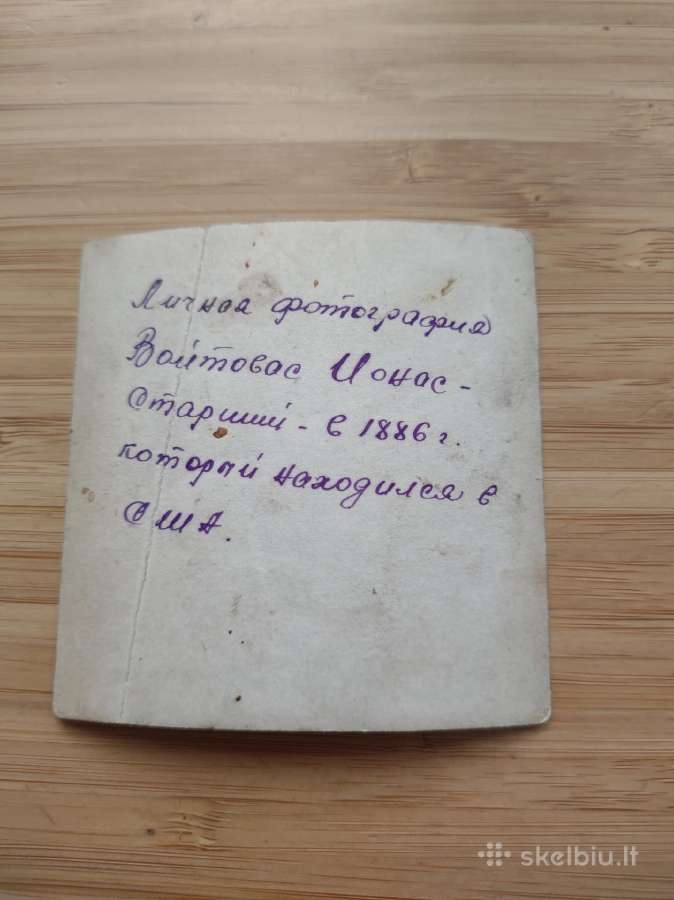 Личная фотография
Войтовас Ионас -
Старший - в 1886 г.
который находился в
США.
skelbiu.lt